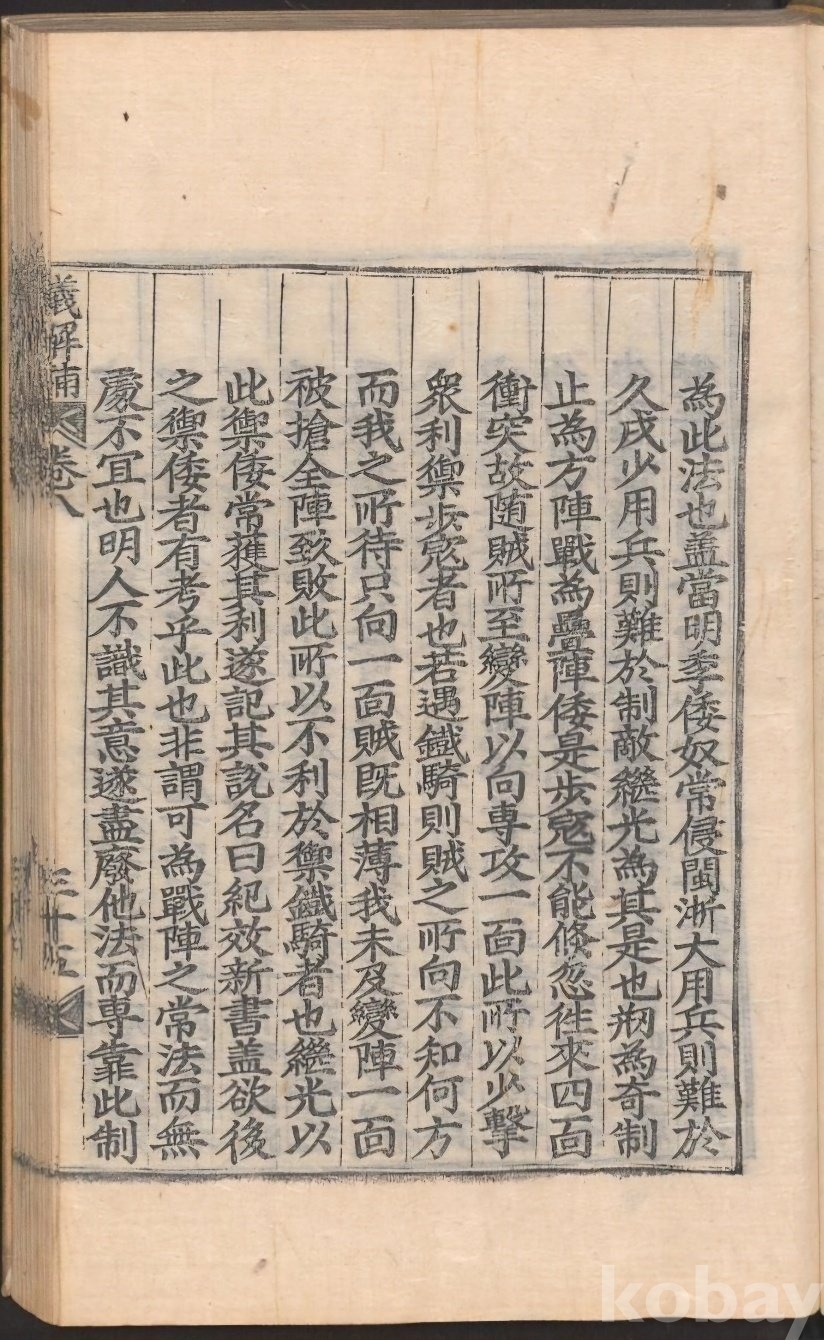 為此法也盖當明季倭奴常侵閩浙大用兵則難於
久戍少用兵則難於制敵繼光為其是也刱為奇制
止為方陣戰為疊陣倭是步寇不能倐忽徃來四面
衝突故随賊所至變陣以向専攻一面此所以少擊
衆利禦步寇者也若遇鐵騎則賊之所向不知何方
而我之所待只向一面賊既相薄我未及變陣一面
被搶全陣致敗此所以不利於禦鐵騎者也繼光以
此禦倭常獲其利遂記其說名曰紀效新書盖欲後
之禦倭者有考乎此也非謂可為戰陣之常法而無
處不宜也明人不識其意遂盡廢他法而専靠此制
義解補 卷八 三十五
kobay